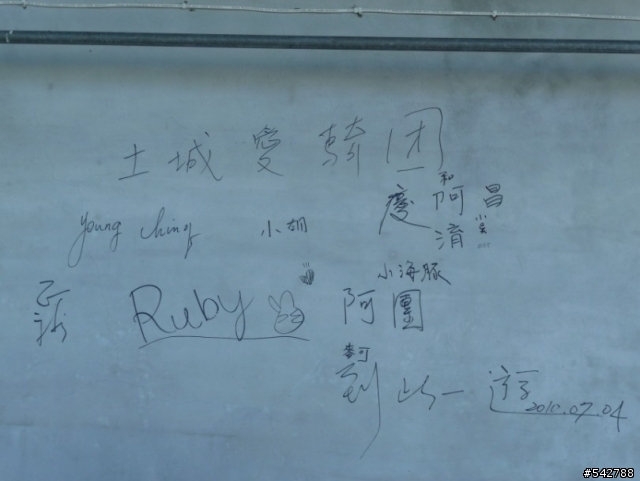 土城愛騎团
慶 和 阿 昌
淯
young ching 小胡
小海豚
Ruby 阿團
到此一遊
2010.07.04
#542788